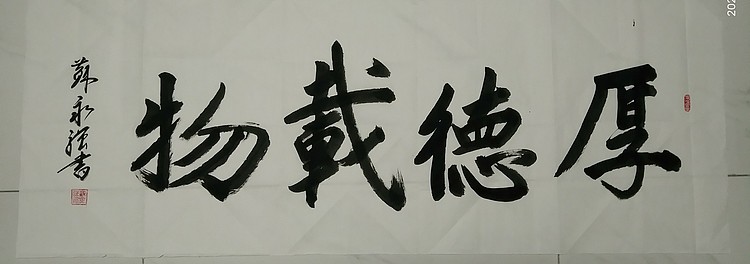 厚德載物
蘇永强書
202